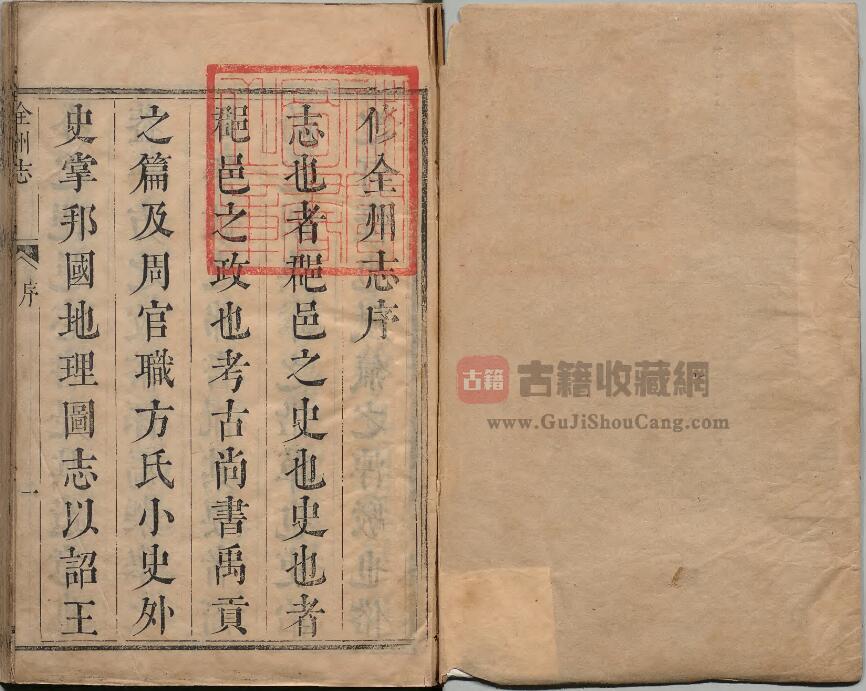 修全州志序
志也者郡邑之史也史也者
郡邑之政也考古尚書禹貢
之篇及周官職方氏小史外
史掌邦國地理圖志以詔王
全州志
序
一
古籍
古籍收藏網
www.GuJiShouCang.com